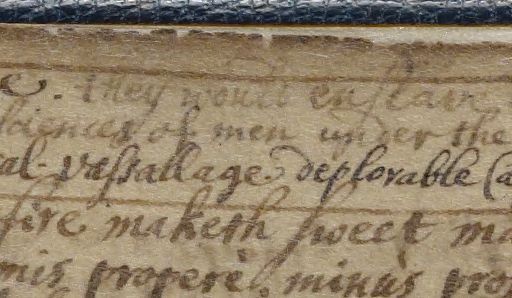 e. they would enslave
sciences of men under the
al. vassallage deplorable (a
fire maketh sweet ma
mis properè, minùs pro